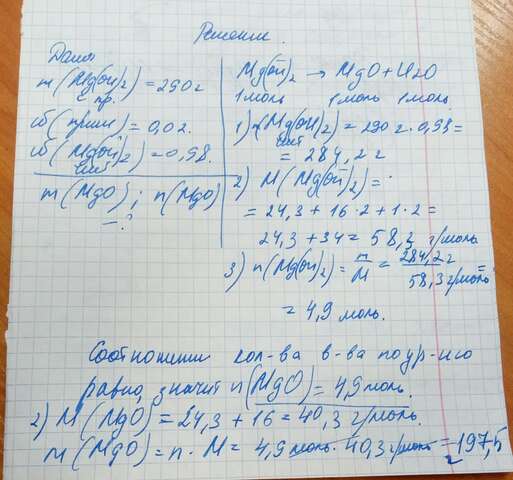 Решение.
Дано:
m(Mg(OH)2) = 290 г
с пр.
ω(прим) = 0,02.
ω(Mg(OH)2) = 0,98.
чист
m(MgO); n(MgO)
— ?
Mg(OH)2 → MgO + H2O
1 моль 1 моль 1 моль
1) m(Mg(OH)2) = 290 г · 0,98 =
чист
= 284,2 г
2) M(Mg(OH)2) =
= 24,3 + 16 · 2 + 1 · 2 =
24,3 + 34 = 58,3 г/моль
3) n(Mg(OH)2) = m/M = 284,2 г / 58,3 г/моль =
= 4,9 моль.
Соотношение кол-ва в-ва по ур-ию
равно, значит n(MgO) = 4,9 моль.
2) M(MgO) = 24,3 + 16 = 40,3 г/моль.
m(MgO) = n · M = 4,9 моль · 40,3 г/моль = 197,5
г